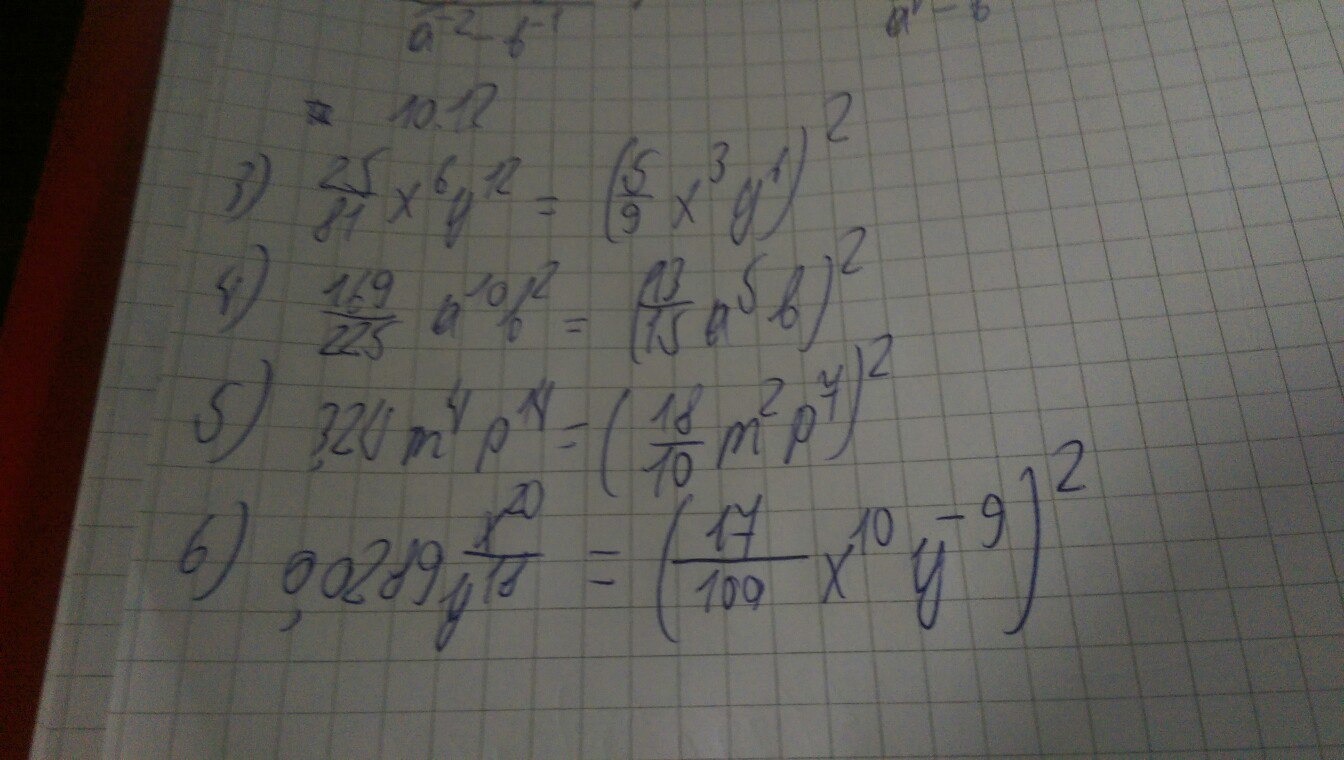 a⁻² - b⁻¹
10.12
3) 25/81 x⁶y¹² = (5/9 x³y¹)²
4) 169/225 a¹⁰b² = (13/15 a⁵b)²
5) 3,24 m⁴p¹⁴ = (18/10 m²p⁷)²
6) 0,0289 x²⁰/y¹⁸ = (17/100 x¹⁰y⁻⁹)²